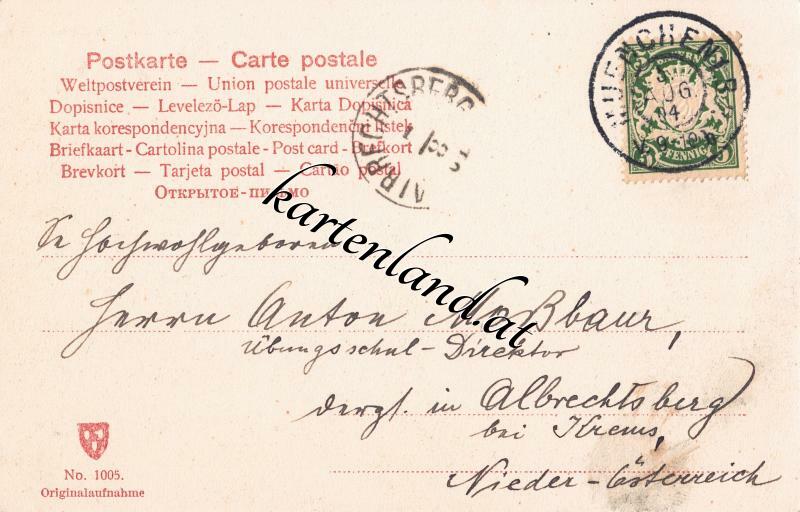 Postkarte — Carte postale
Weltpostverein — Union postale universelle
Dopisnice — Levelező-Lap — Karta Dopisnica
Karta korespondencyjna — Korespondenční lístek
Briefkaart - Cartolina postale - Post card - Brefkort
Brevkort — Tarjeta postal — Cartão postal
ОТКРЫТОЕ-ПИСЬМО
AUG
04
PFENNIG
kartenland.at
Hochwohlgeboren
Herrn Anton Moßbaur,
Übungsschul-Direktor
dergt. in Albrechtsberg
bei Krems,
Nieder-Österreich
No. 1005.
Originalaufnahme